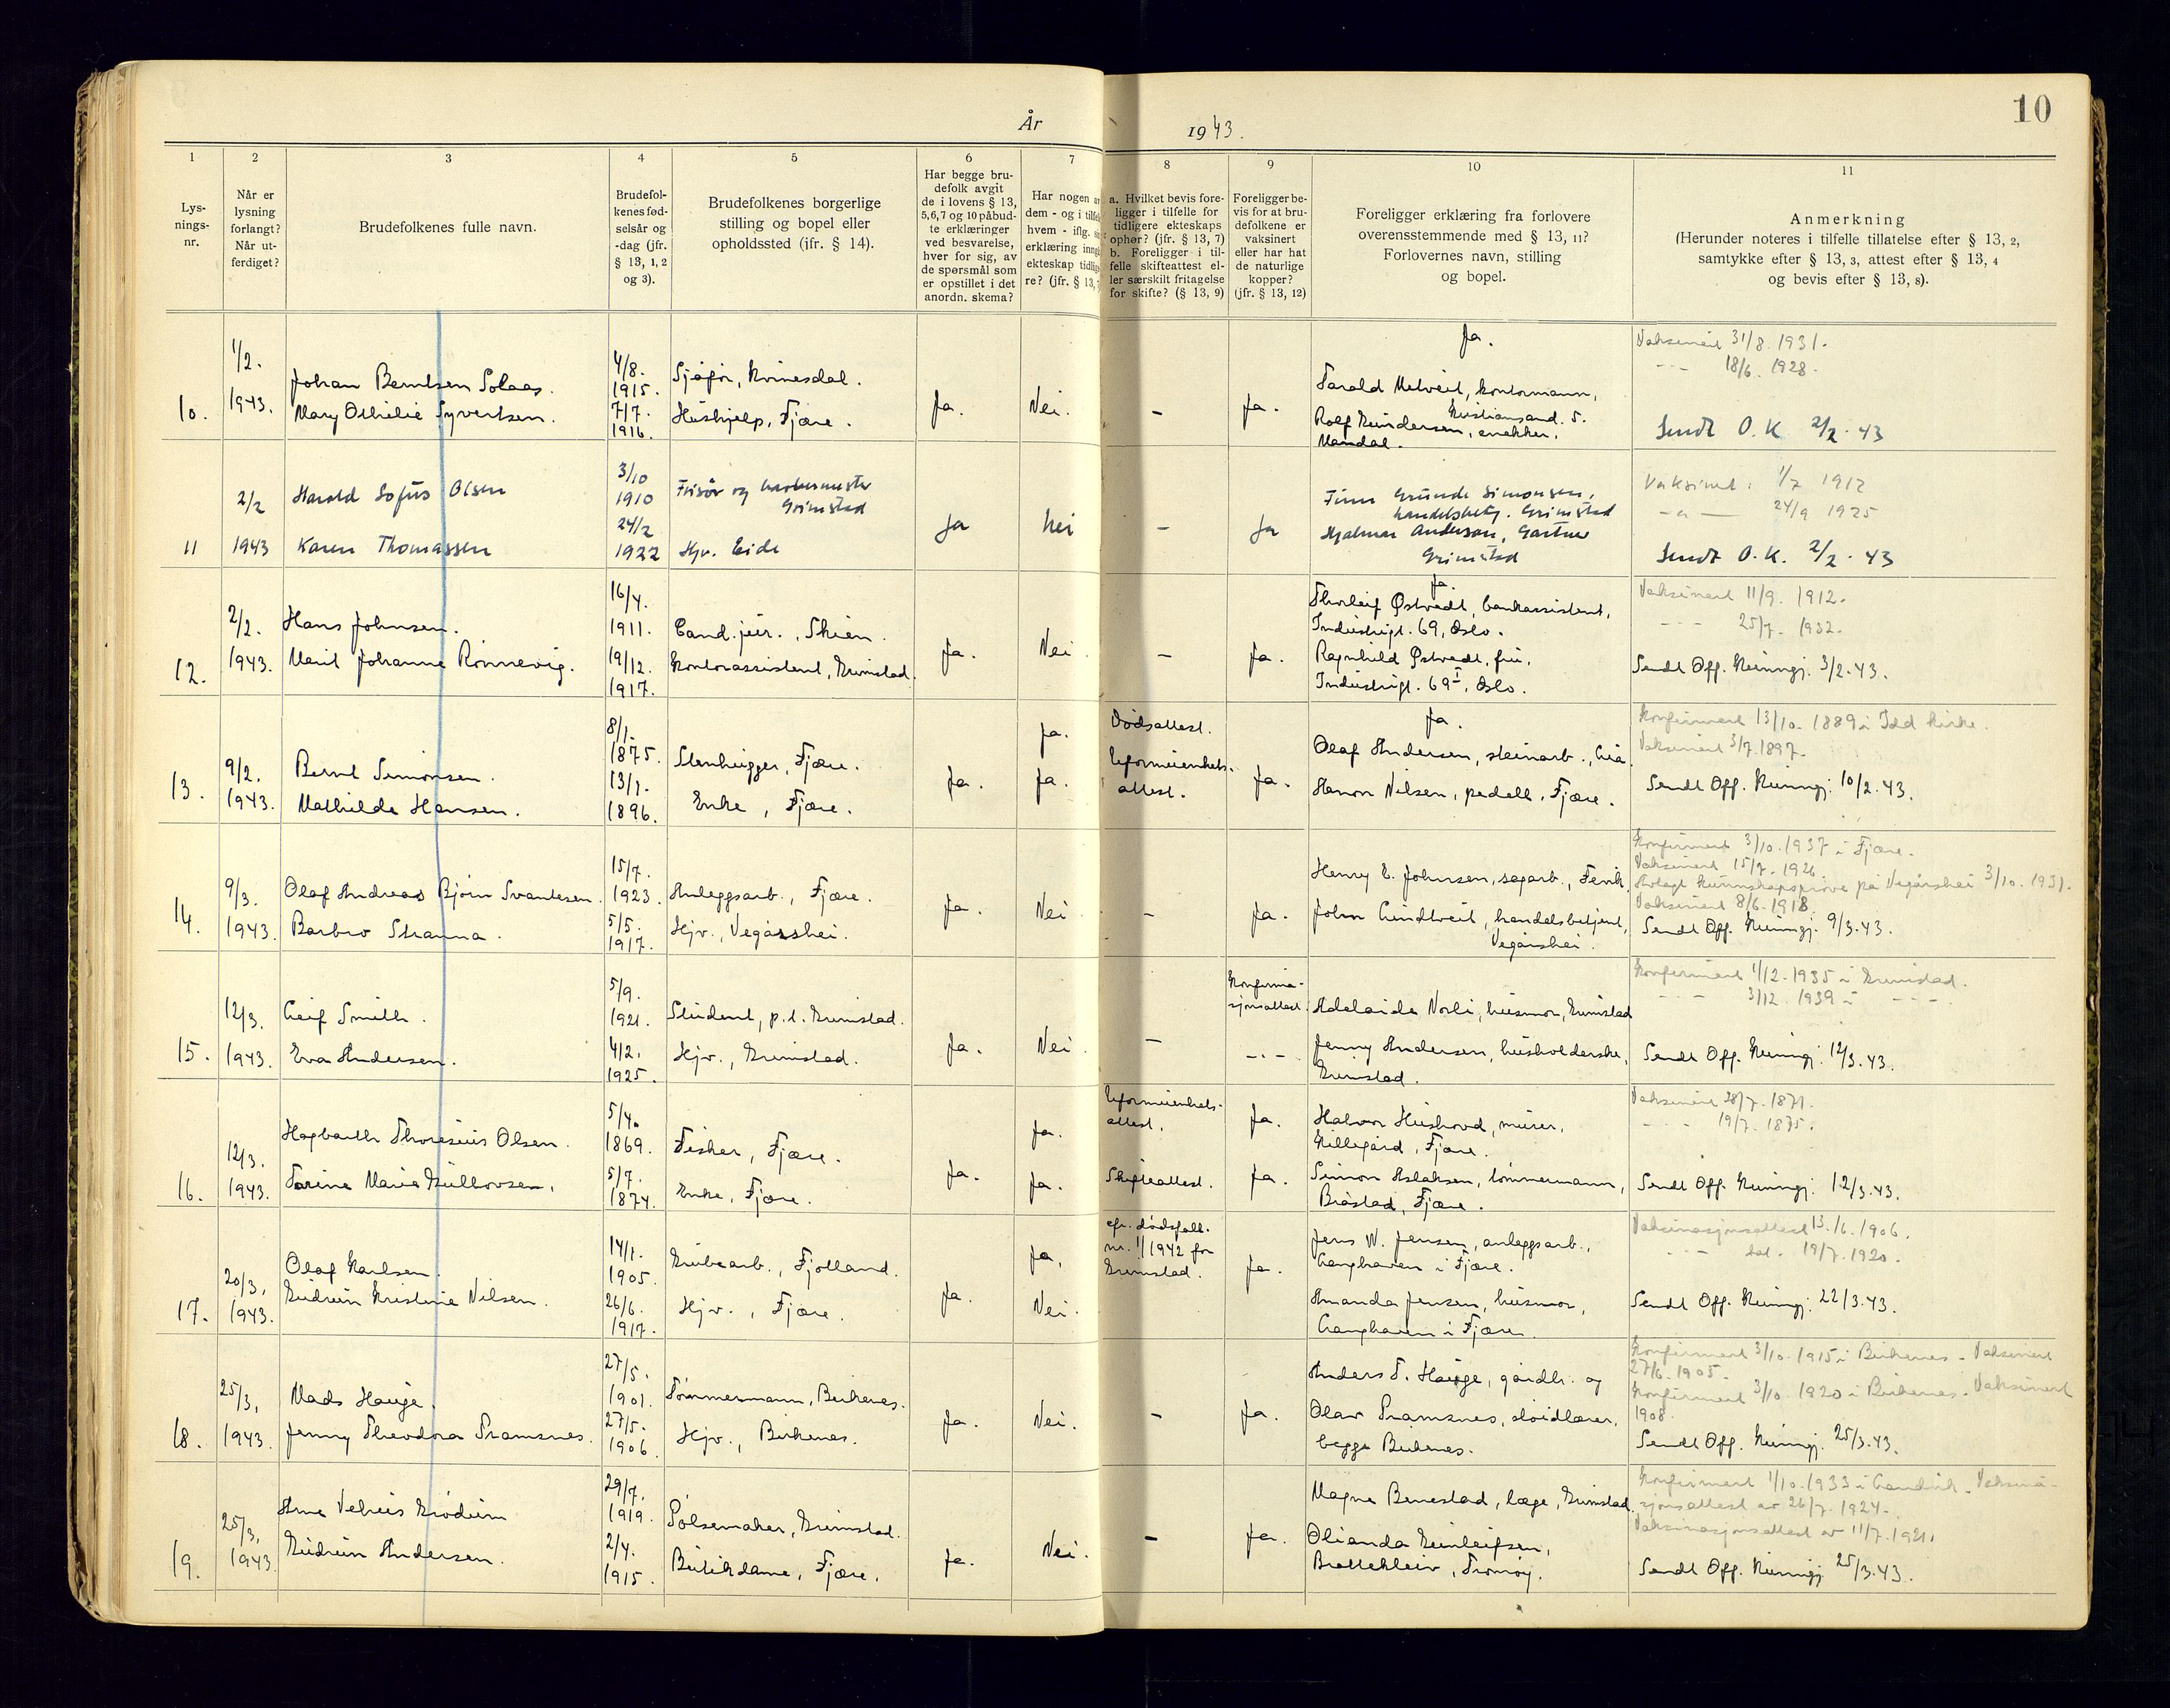 10
År 1943.
1 2 3 4 5 6 7 8 9 10 11
Lys-
nings-
nr.
Når er
lysning
forlangt?
Når ut-
ferdiget?
Brudefolkenes fulle navn.
Brudefol-
kenes fød-
selsår og
-dag (jfr.
§ 13, 1, 2
og 3).
Brudefolkenes borgerlige
stilling og bopel eller
opholdssted (jfr. § 14).
Har begge bru-
defolk avgit
de i lovens § 13,
5, 6, 7 og 10 påbud-
te erklæringer
ved besvarelse,
hver for sig, av
de spørsmål som
er opstillet i det
anordn. skema?
Har nogen a
dem - og i tilfel
hvem - iflg. si
erklæring inng
ekteskap tidlig
re? (jfr. § 13,
a. Hvilket bevis fore-
ligger i tilfelle for
tidligere ekteskaps
ophør? (jfr. § 13, 7)
b. Foreligger i til-
felle skifteattest el-
ler særskilt fritagelse
for skifte? (§ 13, 9)
Foreligger be-
vis for at bru-
defolkene er
vaksinert
eller har hat
de naturlige
kopper?
(jfr. § 13, 12)
Foreligger erklæring fra forlovere
overensstemmende med § 13, 11?
Forlovernes navn, stilling
og bopel.
Anmerkning
(Herunder noteres i tilfelle tillatelse efter § 13, 2,
samtykke efter § 13, 3, attest efter § 13, 4
og bevis efter § 13, 8).
10.
1/2.
1943.
Johan Berntsen Solaas.
Mary Othilie Syvertsen.
4/8.
1915.
7/7.
1916.
Sjåfør, Kvinesdal.
Hushjelp, Fjære.
Ja.
Nei.
-
Ja.
Ja.
Tarald Metveit, kontormann,
Kristiansand. S.
Rolf Gundersen, snekker,
Mandal.
Vaksinert 31/8 1931.
-- 18/6. 1928.
Sendt O.K 2/2. 43
11
2/2
1943
Harald Sofus Olsen
Karen Thomassen
3/10
1910
24/2
1922
Frisør og barbermester
Grimstad
Hjv. Eide
Ja
Nei
-
Ja
Finn Grunde Simonsen,
handelsbetj. Grimstad
Hjalmar Anderson, Gartner
Grimstad
Vaksinert: 1/7 1912
-"- 24/9 1925
Sendt O.K. 2/2. 43
12.
2/2.
1943.
Hans Johnsen.
Marit Johanne Rønnevig.
16/4.
1911.
19/12.
1917.
Cand. jur., Skien.
Kontorassistent, Grimstad.
Ja.
Nei
-
Ja.
Ja.
Thorleif Østvedt, bankassistent,
Industrigt. 69, Oslo.
Ragnhild Østvedt, frue,
Industrigt. 69 I, Oslo.
Vaksinert 11/9. 1912.
-- 25/7. 1932.
Sendt Off. Kunngj. 3/2.43.
13.
9/2.
1943.
Bernt Simonsen.
Mathilde Hansen.
8/1.
1875.
13/1.
1896.
Stenhugger, Fjære.
Enke, Fjære.
Ja.
Ja.
Ja.
Dødsattest.
Uformuenhets-
attest.
Ja.
Ja.
Olaf Andersen, steinarb., Lia.
Hanon Nilsen, pedell, Fjære.
Konfirmert 13/10. 1889 i Idd Kirke.
Vaksinert 3/7.1897.
Sendt Off. Kunngj. 10/2.43.
14.
9/3.
1943.
Olaf Andreas Bjørn Svantesen.
Barbro Stranna.
15/7.
1923.
5/5.
1917.
Anleggsarb., Fjære.
Hjv., Vegårshei.
Ja.
Nei
-
Ja.
Henry E. Johnsen, sagarb., Fevik.
John Lindtveit, handelsbetjent,
Vegårshei.
Konfirmert 3/10. 1937 i Fjære.
Vaksinert 15/7. 1926.
Avlagt kunnskapsprøve på Vegårshei 3/10. 1931.
Vaksinert 8/6. 1918.
Sendt Off. Kunngj. 9/3.43.
15.
12/3.
1943.
Leif Smith.
Eva Andersen.
5/9.
1921.
4/2.
1925.
Student, p.t. Grimstad.
Hjv., Grimstad.
Ja.
Nei
-
Konfirma-
sjonsattest.
-.-
Adelaide Norli, husmor, Grimstad
Jenny Andersen, husholderske,
Grimstad.
Konfirmert 1/12. 1935 i Grimstad.
-- 3/12. 1939 i --
Sendt Off. Kunngj. 12/3.43.
16.
12/3.
1943.
Hagbarth Thoresius Olsen.
Tarine Marie Gullovsen.
5/4.
1869.
5/7.
1874.
Fisker, Fjære.
Enke, Fjære.
Ja.
Ja.
Ja.
Uformuenhets-
attest.
Skifteattest.
Ja.
Ja.
Halvor Hushovd, murer,
Killegård, Fjære.
Simon Aslaksen, tømmermann,
Bråstad, Fjære.
Vaksinert 28/7. 1871.
-- 19/7. 1875.
Sendt Off. Kunngj. 12/3.43.
17.
20/3.
1943.
Olaf Karlsen.
Gudrun Kristine Nilsen.
14/1.
1905.
26/6.
1917.
Grubearb., Fjotland.
Hjv., Fjære.
Ja.
Ja.
Nei.
cfr. dødsfall.
nr. 1/1942 for
Grimstad.
Ja.
Jens W. Jensen, anleggsarb.,
Langhaven i Fjære.
Amanda Jensen, husmor,
Langhaven i Fjære.
Vaksinasjonsattest 13./6. 1906.
-- dat. 19/7. 1920.
Sendt Off. Kunngj. 22/3.43.
18.
25/3.
1943.
Mads Hauge.
Jenny Theodora Tramsnes.
27/5.
1901.
27/5.
1906.
Tømmermann, Birkenes.
Hjv., Birkenes.
Ja.
Nei.
-
Ja.
Anders T. Hauge, gårdbr. og
Olav Tramsnes, sløidlærer,
begge Birkenes.
Konfirmert 3/10. 1915 i Birkenes - Vaksinert
27/6. 1905.
Konfirmert 3/10. 1920 i Birkenes. Vaksinert
1908.
Sendt Off. Kunngj. 25/3.43.
19.
25/3.
1943
Arne Velhus Grødum
Gudrun Andersen.
29/7.
1919.
2/4.
1915.
Pølsemaker, Grimstad.
Butikkdame, Fjære.
Ja.
Nei.
-
Ja.
Magne Benestad, læge, Grimstad.
Olianda Gunleifsen,
Brattekleiv, Tromøy.
Konfirmert 1/10. 1933 i Landvik. Vaksina-
sjonsattest av 26/7. 1924.
Vaksinasjonsattest av 11/7. 1921.
Sendt Off. Kunngj. 25/3.43.